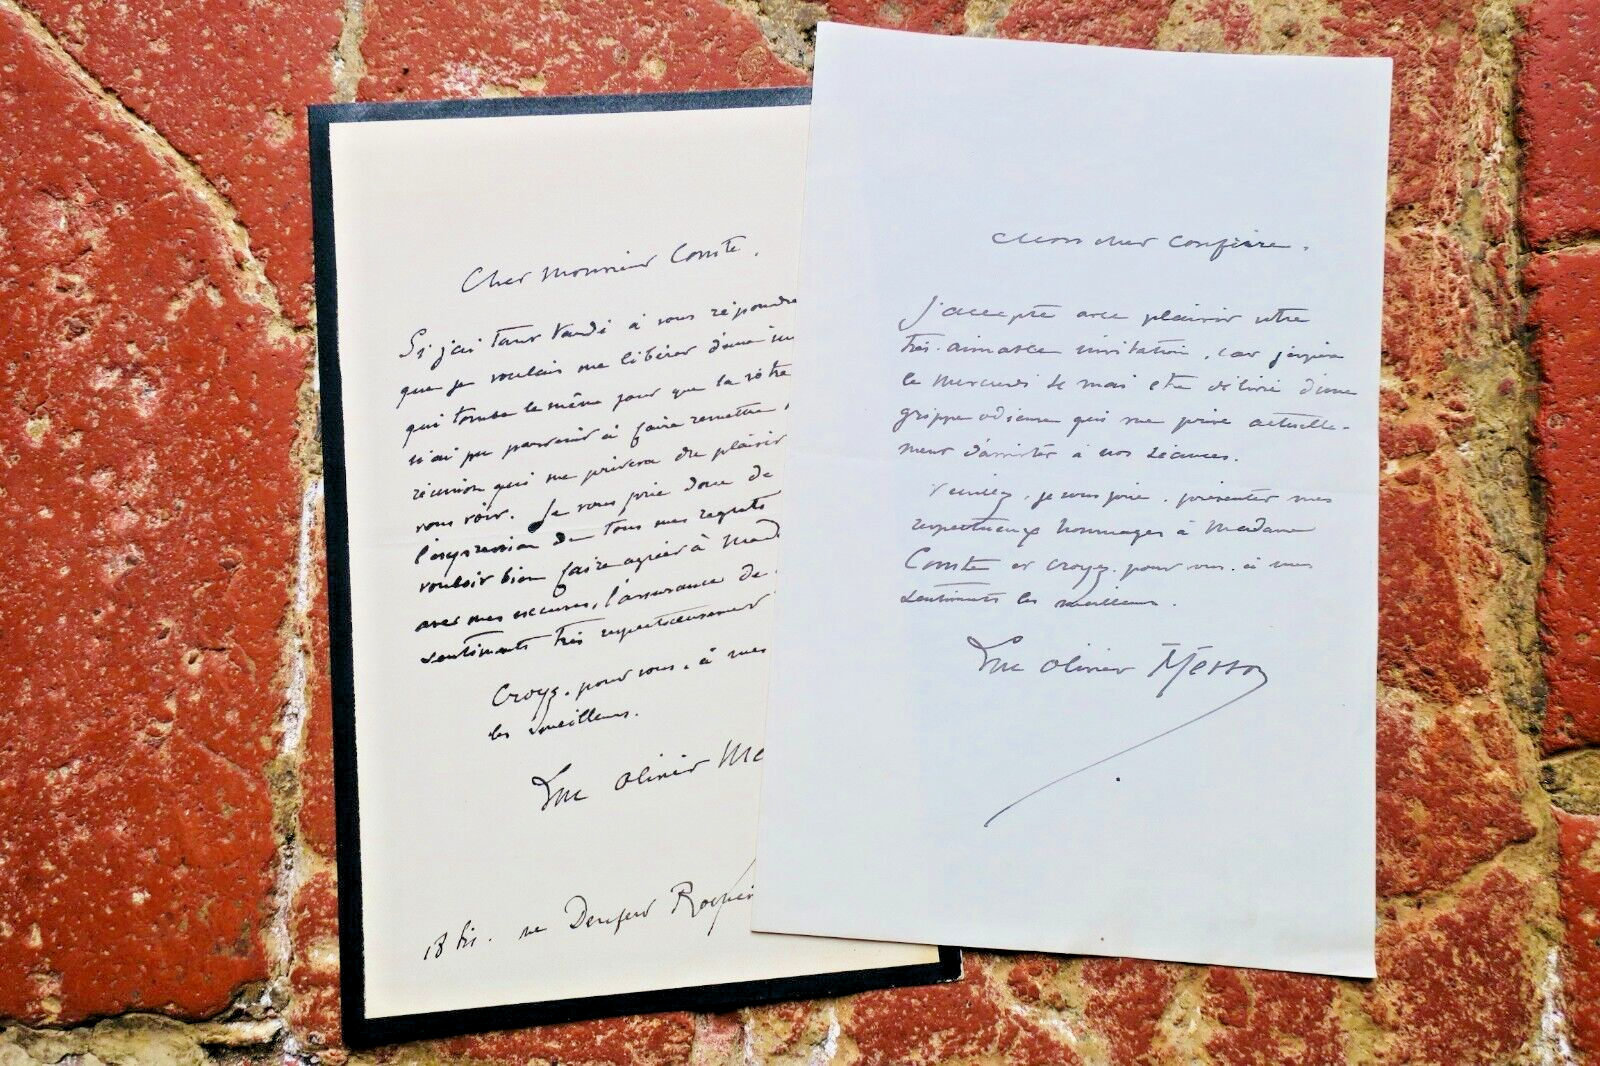 Cher Monsieur Comte.
Si j'ai tant tardé à vous répondre
que je voulais me libérer d'une
qui tombe le même jour que la vôtre
n'ai pu parvenir à faire remettre
réunion qui me privera du plaisir
vous voir. Je vous prie donc de
l'expression de tous mes regrets
vouloir bien faire agréer à Mad
avec mes excuses, l'assurance de
sentiments très respectueusement
Croyez, pour vous, à mes
les meilleurs.
Luc Olivier Me
18 bis. rue Denfert Roche
Mon cher Confrère.
J'accepte avec plaisir votre
très-aimable invitation, car j'espère
le mercredi 14 mai être délivré d'une
grippe odieuse qui me prive actuelle-
ment d'assister à nos séances.
Veuillez, je vous prie, présenter mes
respectueux hommages à Madame
Comte et croyez, pour vous, à mes
sentiments les meilleurs.
Luc Olivier Merson